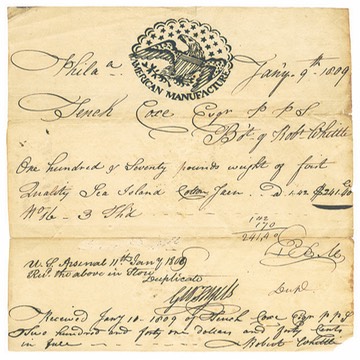 AMERICAN MANUFACTURE
Phila Jany. 9th 1809
Tench Coxe Esqr P P S
Bot. of Robt. Whittle
One hundred & Seventy pounds weight of first
Quality Sea Island Cotton @ 1.42 $241.40
No 16 - 3
1.42
170
241.40
U.S Arsenal 11th Jany 1809
Recd. the above in Store
Duplicate
Dupl.
Received Jany 10 - 1809 of Tench Coxe Esqr P P S
Two hundred and forty one dollars and forty Cents
in full Robert Whittle